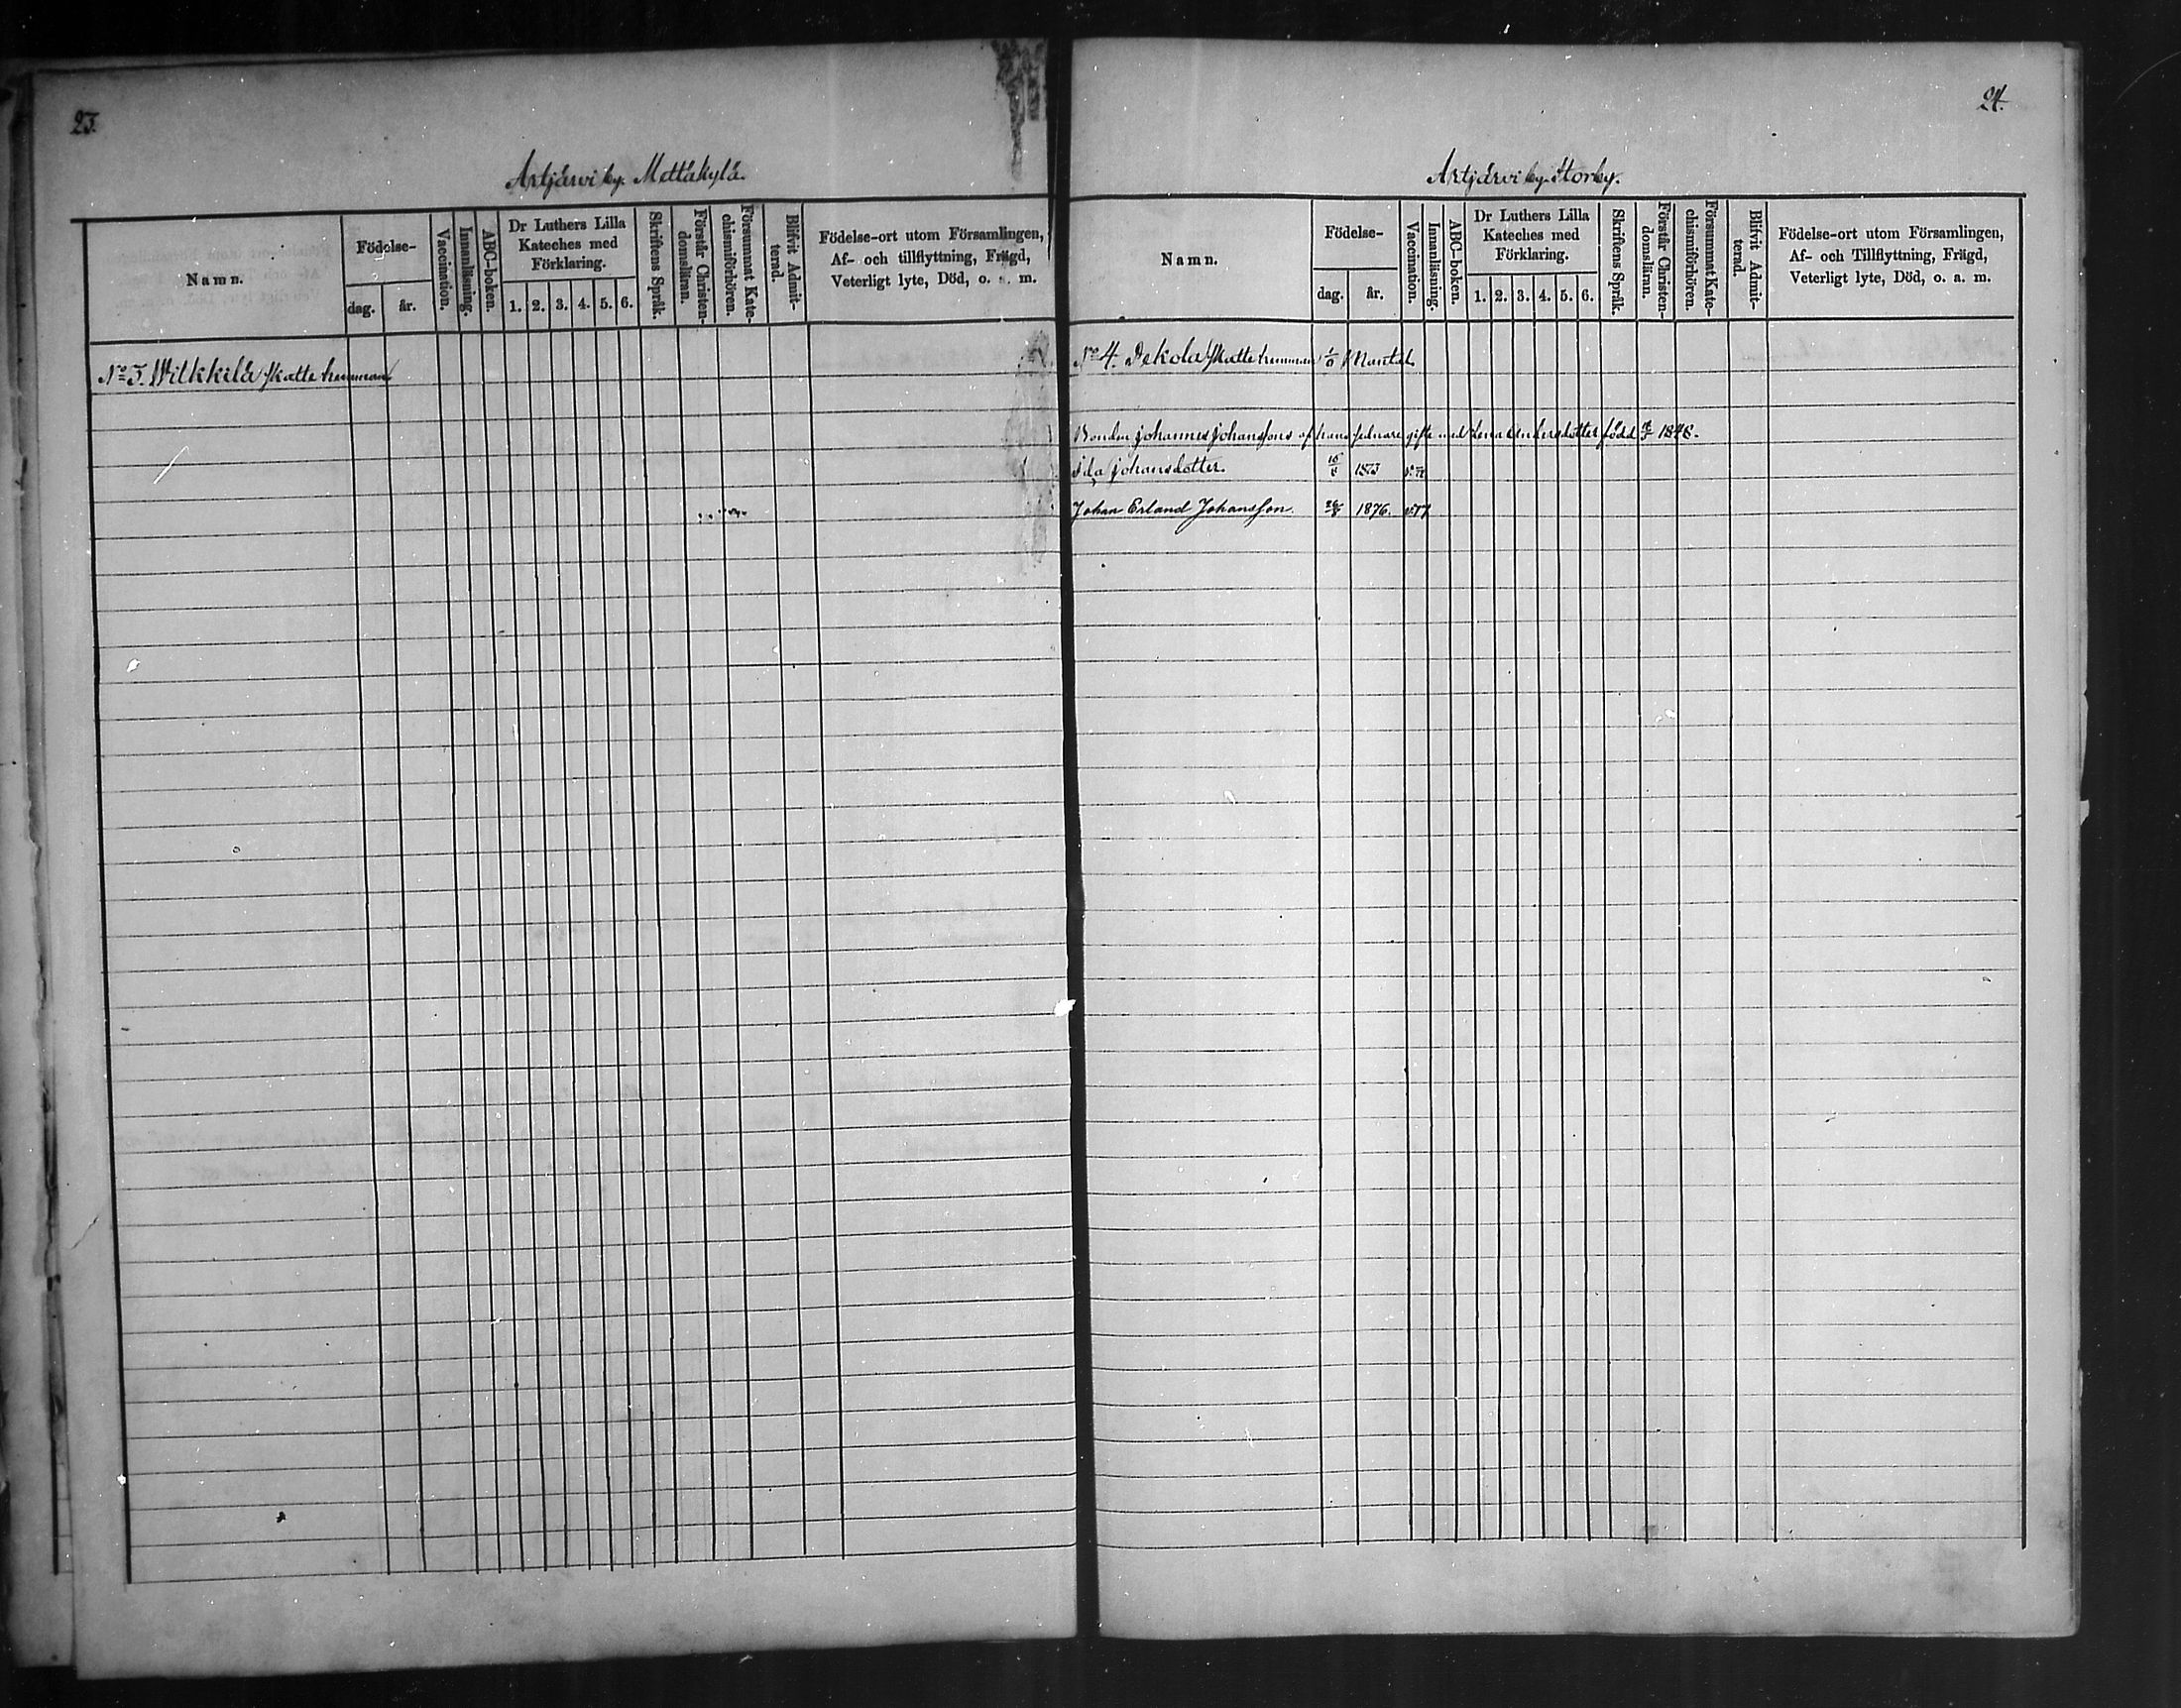 23.
Artjärvi by. Mettäkylä.
Namn.
Födelse-
dag.
år.
Vaccination.
Innanläsning.
ABC-boken.
Dr Luthers Lilla
Kateches med
Förklaring.
1. 2. 3. 4. 5. 6.
Skriftens Språk.
Förstår Christen-
domsläran.
Försummat Kate-
chismiförhören.
Blifvit Admit-
terad.
Födelse-ort utom Församlingen,
Af- och tillflyttning, Frägd,
Veterligt lyte, Död, o. a. m.
No 3. Wilkkilä Skatte hemman
24.
Artjärvi by. Storby.
Namn.
Födelse-
dag.
år.
Vaccination.
Innanläsning.
ABC-boken.
Dr Luthers Lilla
Kateches med
Förklaring.
1. 2. 3. 4. 5. 6.
Skriftens Språk.
Förstår Christen-
domsläran.
Försummat Kate-
chismiförhören.
Blifvit Admit-
terad.
Födelse-ort utom Församlingen,
Af- och Tillflyttning, Frägd,
Veterligt lyte, Död, o. a. m.
No 4. Dekola Skatte hemman Mantal.
Bonden Johannes Johanssons af hans sednare gifte med Lena Andersdotter född 1848.
Ida Johansdotter 1873
Johan Erland Johansson. 1876. v. 77